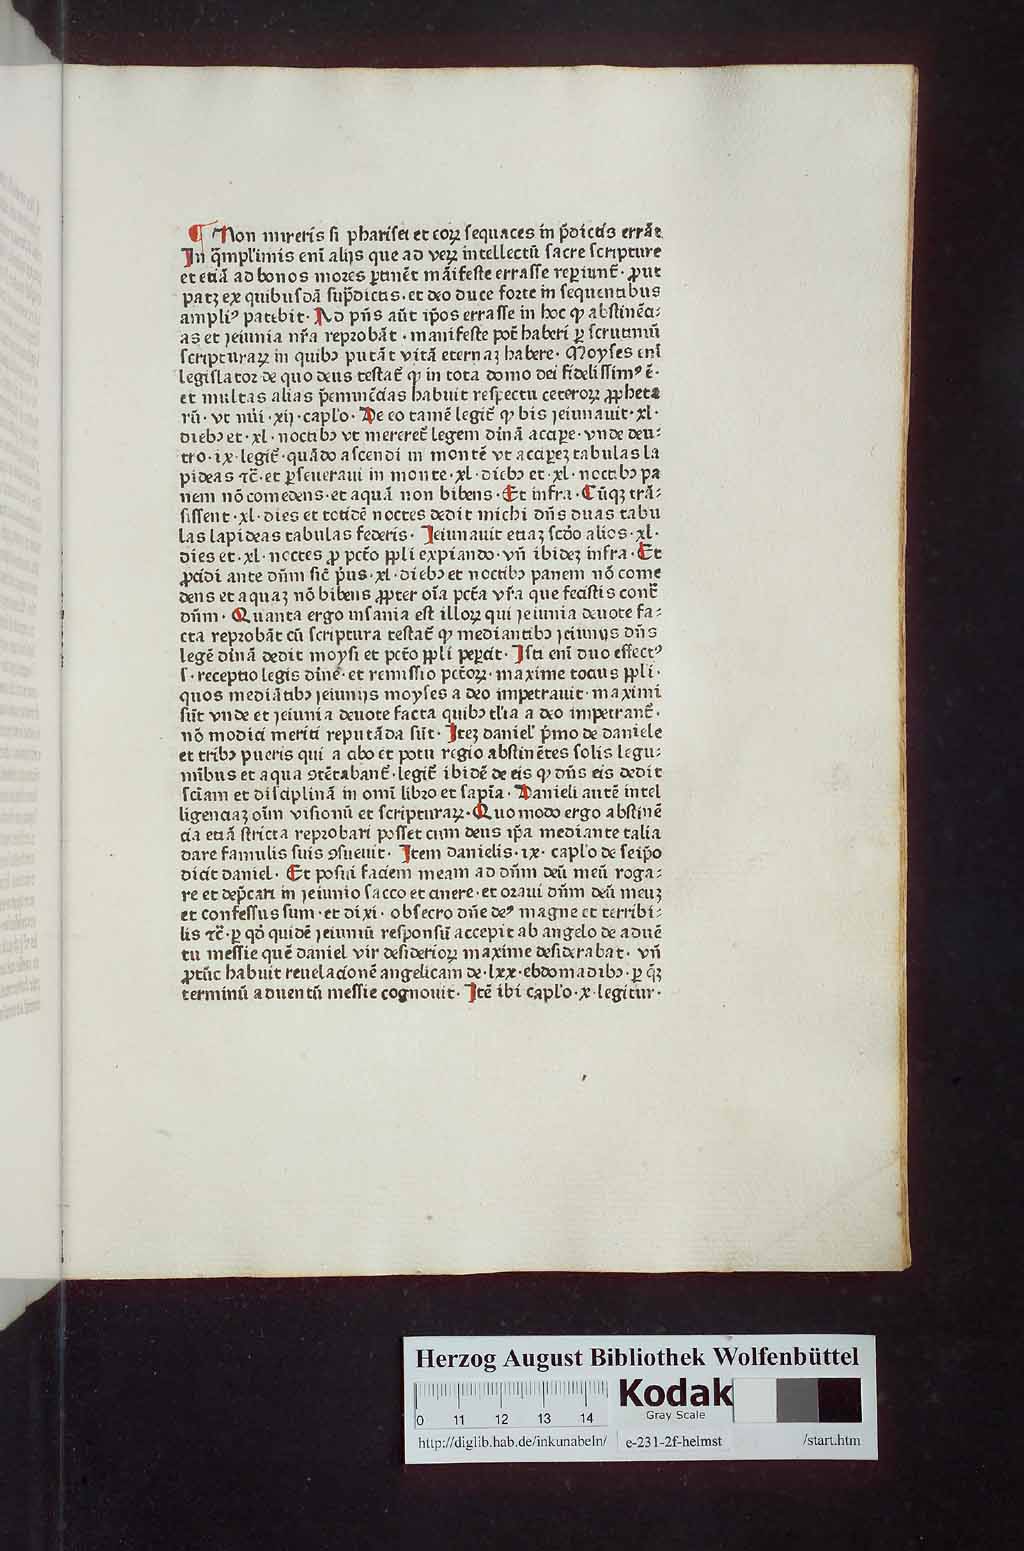 ¶ Non mireris si pharisei et eoꝝ sequaces in p̄dictis errāt
In q̄mpl'imis eni̅ alijs que ad veꝝ intellectū sacre scripture
et etiā ad bonos mores ꝑtinēt māifeste errasse reꝑiunt̄· ꝓut
patꝫ ex quibusdā sup̄dictis· et deo duce forte in sequentibus
ampliꝰ patebit· Ad pn̄s aūt ip̄os errasse in hoc ꝙ abstinēci⸗
as et ieiunia nr̄a reprobāt· manifeste pot̄ haberi ꝑ scrutiniū
scripturaꝝ in quibꝫ putāt vitā eternaꝫ habere· Moyses eni̅
legislator de quo deus testat̄ ꝙ in tota domo dei fidelissimꝰ ē·
et multas alias p̄eminēcias habuit respectu ceteroꝝ ꝓpheta
rū· vt nūi ·xij· capl'o· De eo tamē legit̄ ꝙ bis ieiunauit ·xl·
diebꝫ et ·xl· noctibꝫ vt mereret̄ legem diuinā accipe· vnde deu⸗
tro· ix· legit̄· quādo ascendi in montē vt accipereꝫ tabulas la
pideas ⁊c̄· et ꝑseueraui in monte ·xl· diebꝫ et ·xl· noctibꝫ pa
nem nō comedens· et aquā non bibens· Et infra· Cūqꝫ trā⸗
sissent ·xl· dies et totidē noctes dedit michi dn̄s duas tabu
las lapideas tabulas federis· Ieiunauit etiaꝫ scd̄o alios ·xl·
dies et ·xl· noctes ꝓ pctō ppl'i expiando· vn̄ ibideꝫ infra· Et
ꝓcidi ante dn̄m sic̄ p̄us ·xl· diebꝫ et noctibꝫ panem nō come
dens et aquaꝫ nō bibens ꝓpter oīa pctā vr̄a que fecistis cont̄
dn̄m· Quanta ergo insania est illoꝝ qui ieiunia deuote fa⸗
cta reprobāt cū scriptura testat̄ ꝙ mediantibꝫ ieiunijs dn̄s
legē diuinā dedit moysi et pctō ppl'i peꝑcit· Isti eni̅ duo effectꝰ
s· receptio legis diuine· et remissio pctōꝝ· maxime tocius ppl'i·
quos mediātibꝫ ieiunijs moyses a deo impetrauit· maximi
sūt vnde et ieiunia deuote facta quibꝫ tl'ia a deo impetrant̄·
nō modici meriti reputāda sūt· Iteꝫ daniel' p̄mo de daniele
et tribꝫ pueris qui a cibo et potu regio abstinētes solis legu⸗
minibus et aqua ꝯtētabant̄· legit̄ ibidē de eis ꝙ dn̄s eis dedit
sciam et disciplinā in omi̅ libro et sapīa· Danieli autē intel
ligenciaꝫ oīm visionū et scripturaꝝ· Quomodo ergo abstinē
cia etiā stricta reprobari posset cum deus ip̄a mediante talia
dare famulis suis ꝯsueuit· Item danielis ·ix· capl'o de seip̄o
dicit daniel· Et posui faciem meam ad dn̄m deū meū roga⸗
re et dep̄cari in ieiunio sacco et cinere· et oraui dn̄m deū meuꝫ
et confessus sum· et dixi· obsecro dn̄e deꝰ magne et terribi⸗
lis ⁊c̄· ꝑ qd̄ quidē ieiuniū responsū accepit ab angelo de aduē
tu messie quē daniel vir desiderioꝝ maxime desiderabat· vn̄
ꝓtūc habuit reuelacionē angelicam de ·lxx· ebdomadibꝫ· ꝑ q̄ꝫ
terminū aduentū messie cognouit· Itē ibi capl'o ·x· legitur·
Herzog August Bibliothek Wolfenbüttel
Kodak
Gray Scale
0 11 12 13 14
http://diglib.hab.de/inkunabeln/ e-231-2f-helmst /start.htm